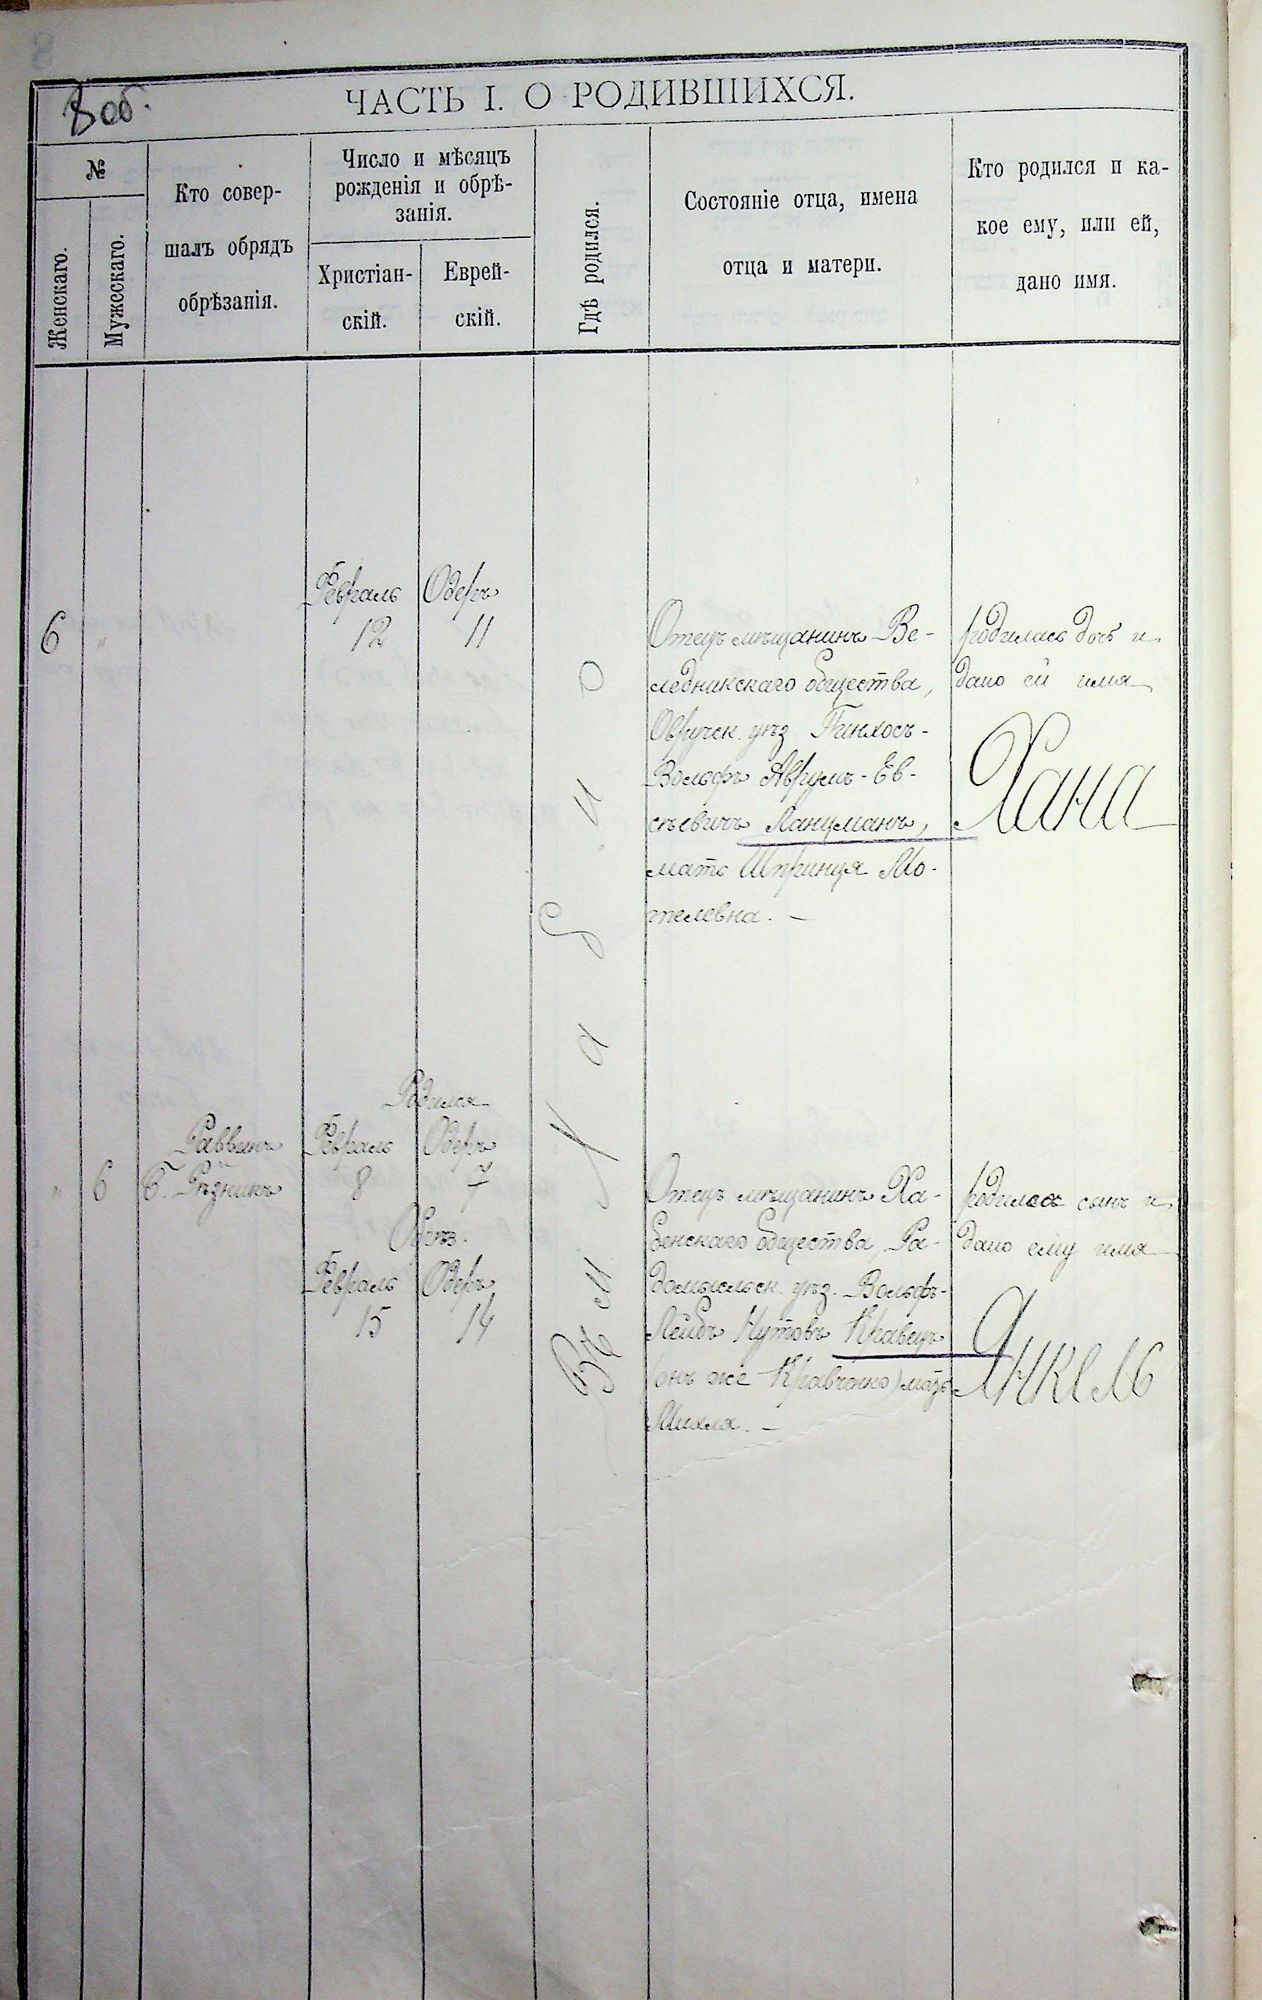 8 об.
ЧАСТЬ I. О РОДИВШИХСЯ.
№
Женскаго.
Мужескаго.
Кто совер-
шалъ обрядъ
обрѣзанія.
Число и мѣсяцъ
рожденія и обрѣ-
занія.
Христіан-
скій.
Еврей-
скій.
Гдѣ родился.
Состояніе отца, имена
отца и матери.
Кто родился и ка-
кое ему, или ей,
дано имя.
6
"
Февраль
12
Одеръ
11
Отецъ мѣщанинъ Ве-
ледникскаго общества,
Овручск. уѣз. Пинхосъ-
Вольфъ Аврумъ-Ев-
сѣевичъ Ланцманъ,
мать Шпринця Мо-
телевна. —
родилась дочь и
дано ей имя
Хана
"
6
Раввинъ
Б. Рѣзникъ
Родился
Февраль
8
Одеръ
7
Обрѣз.
Февраль
15
Одеръ
14
Отецъ мѣщанинъ Ха-
бенскаго общества, Ра-
домысльск. уѣз. Вольфъ-
Лейбъ Нутовъ Кравецъ
(онъ же Кравченко) мать
Михля. —
родился сынъ и
дано ему имя
Янкель